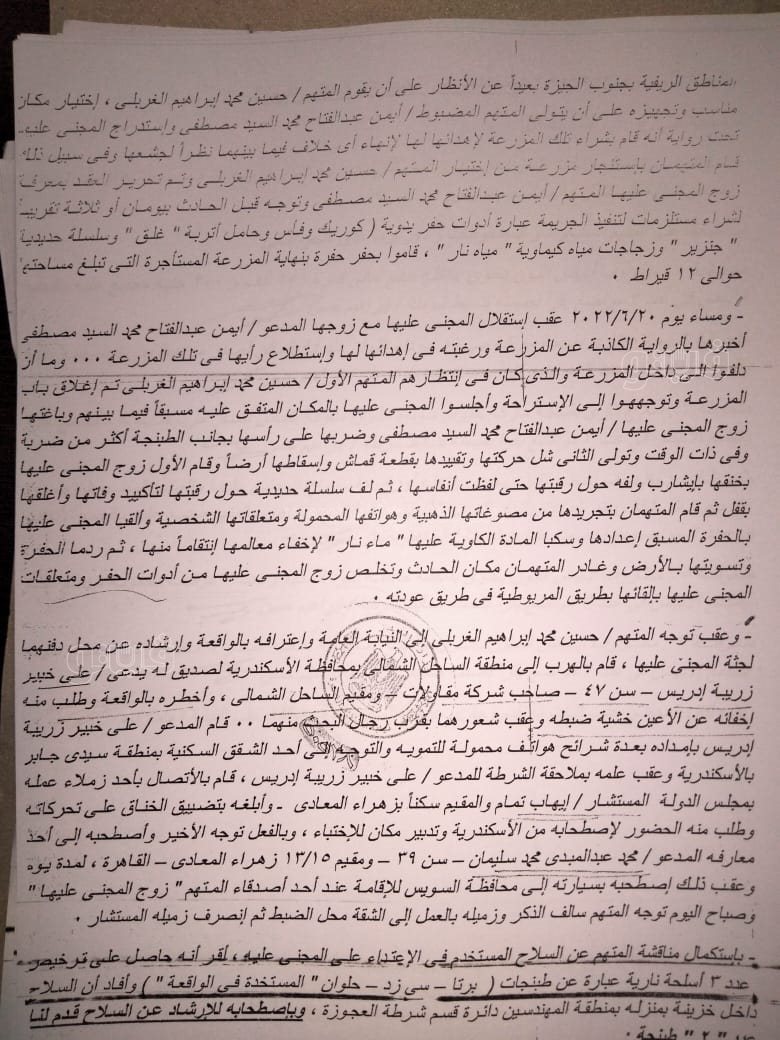 المناطق الريفية بجنوب الجيزة بعيداً عن الأنظار على أن يقوم المتهم / حسين محمد إبراهيم الغربلى ، إختيار مكان
مناسب وتجهيزه على أن يتولى المتهم المضبوط / أيمن عبدالفتاح محمد السيد مصطفى وإستدراج المجنى عليها
تحت رواية أنه قام بشراء تلك المزرعة لإهدائها لها لإنهاء أى خلاف فيما بينهما نظراً لجشعها وفى سبيل ذلك
قام المتهمان بإستئجار مزرعة من إختيار المتهم / حسين محمد إبراهيم الغربلى وتم تحرير العقد بمعرفة
زوج المجنى عليها المتهم / أيمن عبدالفتاح محمد السيد مصطفى وتوجه قبل الحادث بيومان أو ثلاثة تقريباً
لشراء مستلزمات لتنفيذ الجريمة عبارة أدوات حفر يدوية ( كوريك وفأس وحامل أتربة " غلق " وسلسلة حديدية
" جنزير " وزجاجات مياه كيماوية " مياه نار " ، قاموا بحفر حفرة بنهاية المزرعة المستأجرة التى تبلغ مساحتها
حوالى ١٢ قيراط .
- ومساء يوم ٢٠٢٢/٦/٢٠ عقب إستقلال المجنى عليها مع زوجها المدعو / أيمن عبدالفتاح محمد السيد مصطفى
أخبرها بالرواية الكاذبة عن المزرعة ورغبته فى إهدائها لها وإستطلاع رأيها فى تلك المزرعة ... وما أن
دلفوا إلى داخل المزرعة والذى كان فى إنتظارهم المتهم الأول / حسين محمد إبراهيم الغربلى تم إغلاق باب
المزرعة وتوجههوا إلى الإستراحة وأجلسوا المجنى عليها بالمكان المتفق عليه مسبقاً فيما بينهم وباغتها
زوج المجنى عليها / أيمن عبدالفتاح محمد السيد مصطفى وضربها على رأسها بجانب الطبنجة أكثر من ضربة
وفى ذات الوقت وتولى الثانى شل حركتها وتقييدها بقطعة قماش وإسقاطها أرضاً وقام الأول زوج المجنى عليها
بخنقها بإيشارب ولفه حول رقبتها حتى لفظت أنفاسها ، ثم لف سلسلة حديدية حول رقبتها لتأكييد وفاتها وأغلقها
بقفل ثم قام المتهمان بتجريدها من مصوغاتها الذهبية وهواتفها المحمولة ومتعلقاتها الشخصية وألقيا المجنى عليها
بالحفرة المسبق إعدادها وسكبا المادة الكاوية عليها " ماء نار " لإخفاء معالمها إنتقاماً منها ، ثم ردما الحفرة
وتسويتها بالأرض وغادر المتهمان مكان الحادث وتخلص زوج المجنى عليها من أدوات الحفر ومتعلقات
المجنى عليها بإلقائها بطريق المريوطية فى طريق عودته .
- وعقب توجه المتهم / حسين محمد إبراهيم الغربلى إلى النيابة العامة وإعترافه بالواقعة وإرشاده عن محل دفنهما
لجثة المجنى عليها ، قام بالهرب إلى منطقة الساحل الشمالى بمحافظة الأسكندرية لصديق له يدعى / على خبير
زريبة إدريس – سن ٤٧ – صاحب شركة مقاولات – ومقيم الساحل الشمالى ، وأخطره بالواقعة وطلب منه
إخفائه عن الأعين خشية ضبطه وعقب شعورهما بقرب رجال البحث منهما .. قام المدعو / على خبير زريبة
إدريس بإمداده بعدة شرائح هواتف محمولة للتمويه والتوجه إلى أحد الشقق السكنية بمنطقة سيدى جابر
بالأسكندرية وعقب علمه بملاحقة الشرطة للمدعو / على خبير زريبة إدريس ، قام بالأتصال بأحد زملاء عمله
بمجلس الدولة المستشار / إيهاب تمام والمقيم سكناً بزهراء المعادى - وأبلغه بتضييق الخناق على تحركاته
وطلب منه الحضور لإصطحابه من الأسكندرية وتدبير مكان للإختباء ، وبالفعل توجه الأخير وأصطحبه إلى أحد
معارفه المدعو / محمد عبدالمبدى محمد سليمان – سن ٣٩ – ومقيم ١٣/١٥ زهراء المعادى – القاهرة ، لمدة يوم
وعقب ذلك إصطحبه بسيارته إلى محافظة السويس للإقامة عند أحد أصدقاء المتهم " زوج المجنى عليها "
وصباح اليوم توجه المتهم سالف الذكر وزميله بالعمل إلى الشقة محل الضبط ثم إنصرف زميله المستشار .
- بإستكمال مناقشة المتهم عن السلاح المستخدم فى الإعتداء على المجنى عليه ، أقر أنه حاصل على ترخيص
عدد ٣ أسلحة نارية عبارة عن طبنجات ( برتا – سى زد – حلوان " المستخدة فى الواقعة " ) وأفاد أن السلاح
داخل خزينة بمنزله بمنطقة المهندسين دائرة قسم شرطة العجوزة ، وبإصطحابه للإرشاد عن السلاح قدم لنا
عدد " ٢ " طبنجة .
فيتو